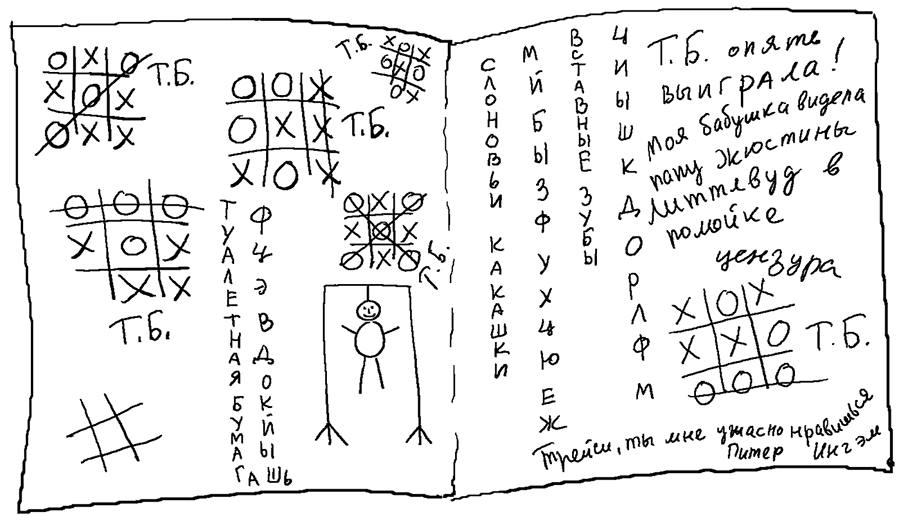 Т.Б.
Т.Б.
Т.Б.
Т.Б.
Т.Б.
ТУАЛЕТНАЯ БУМАГА
ФЦЭВДОКЙЫШЬ
СЛОНОВЬИ КАКАШКИ
МЙБЫЗФУХЦЮЕЖ
ВСТАВНЫЕ ЗУБЫ
ЦИЫШКДОРЛФМ
Т.Б. опять
выиграла!
Моя бабушка видела
папу Жюстины
Литтлвуд в
помойке
цензура
Т.Б.
Трейси, ты мне ужасно нравишься
Питер Ингэм